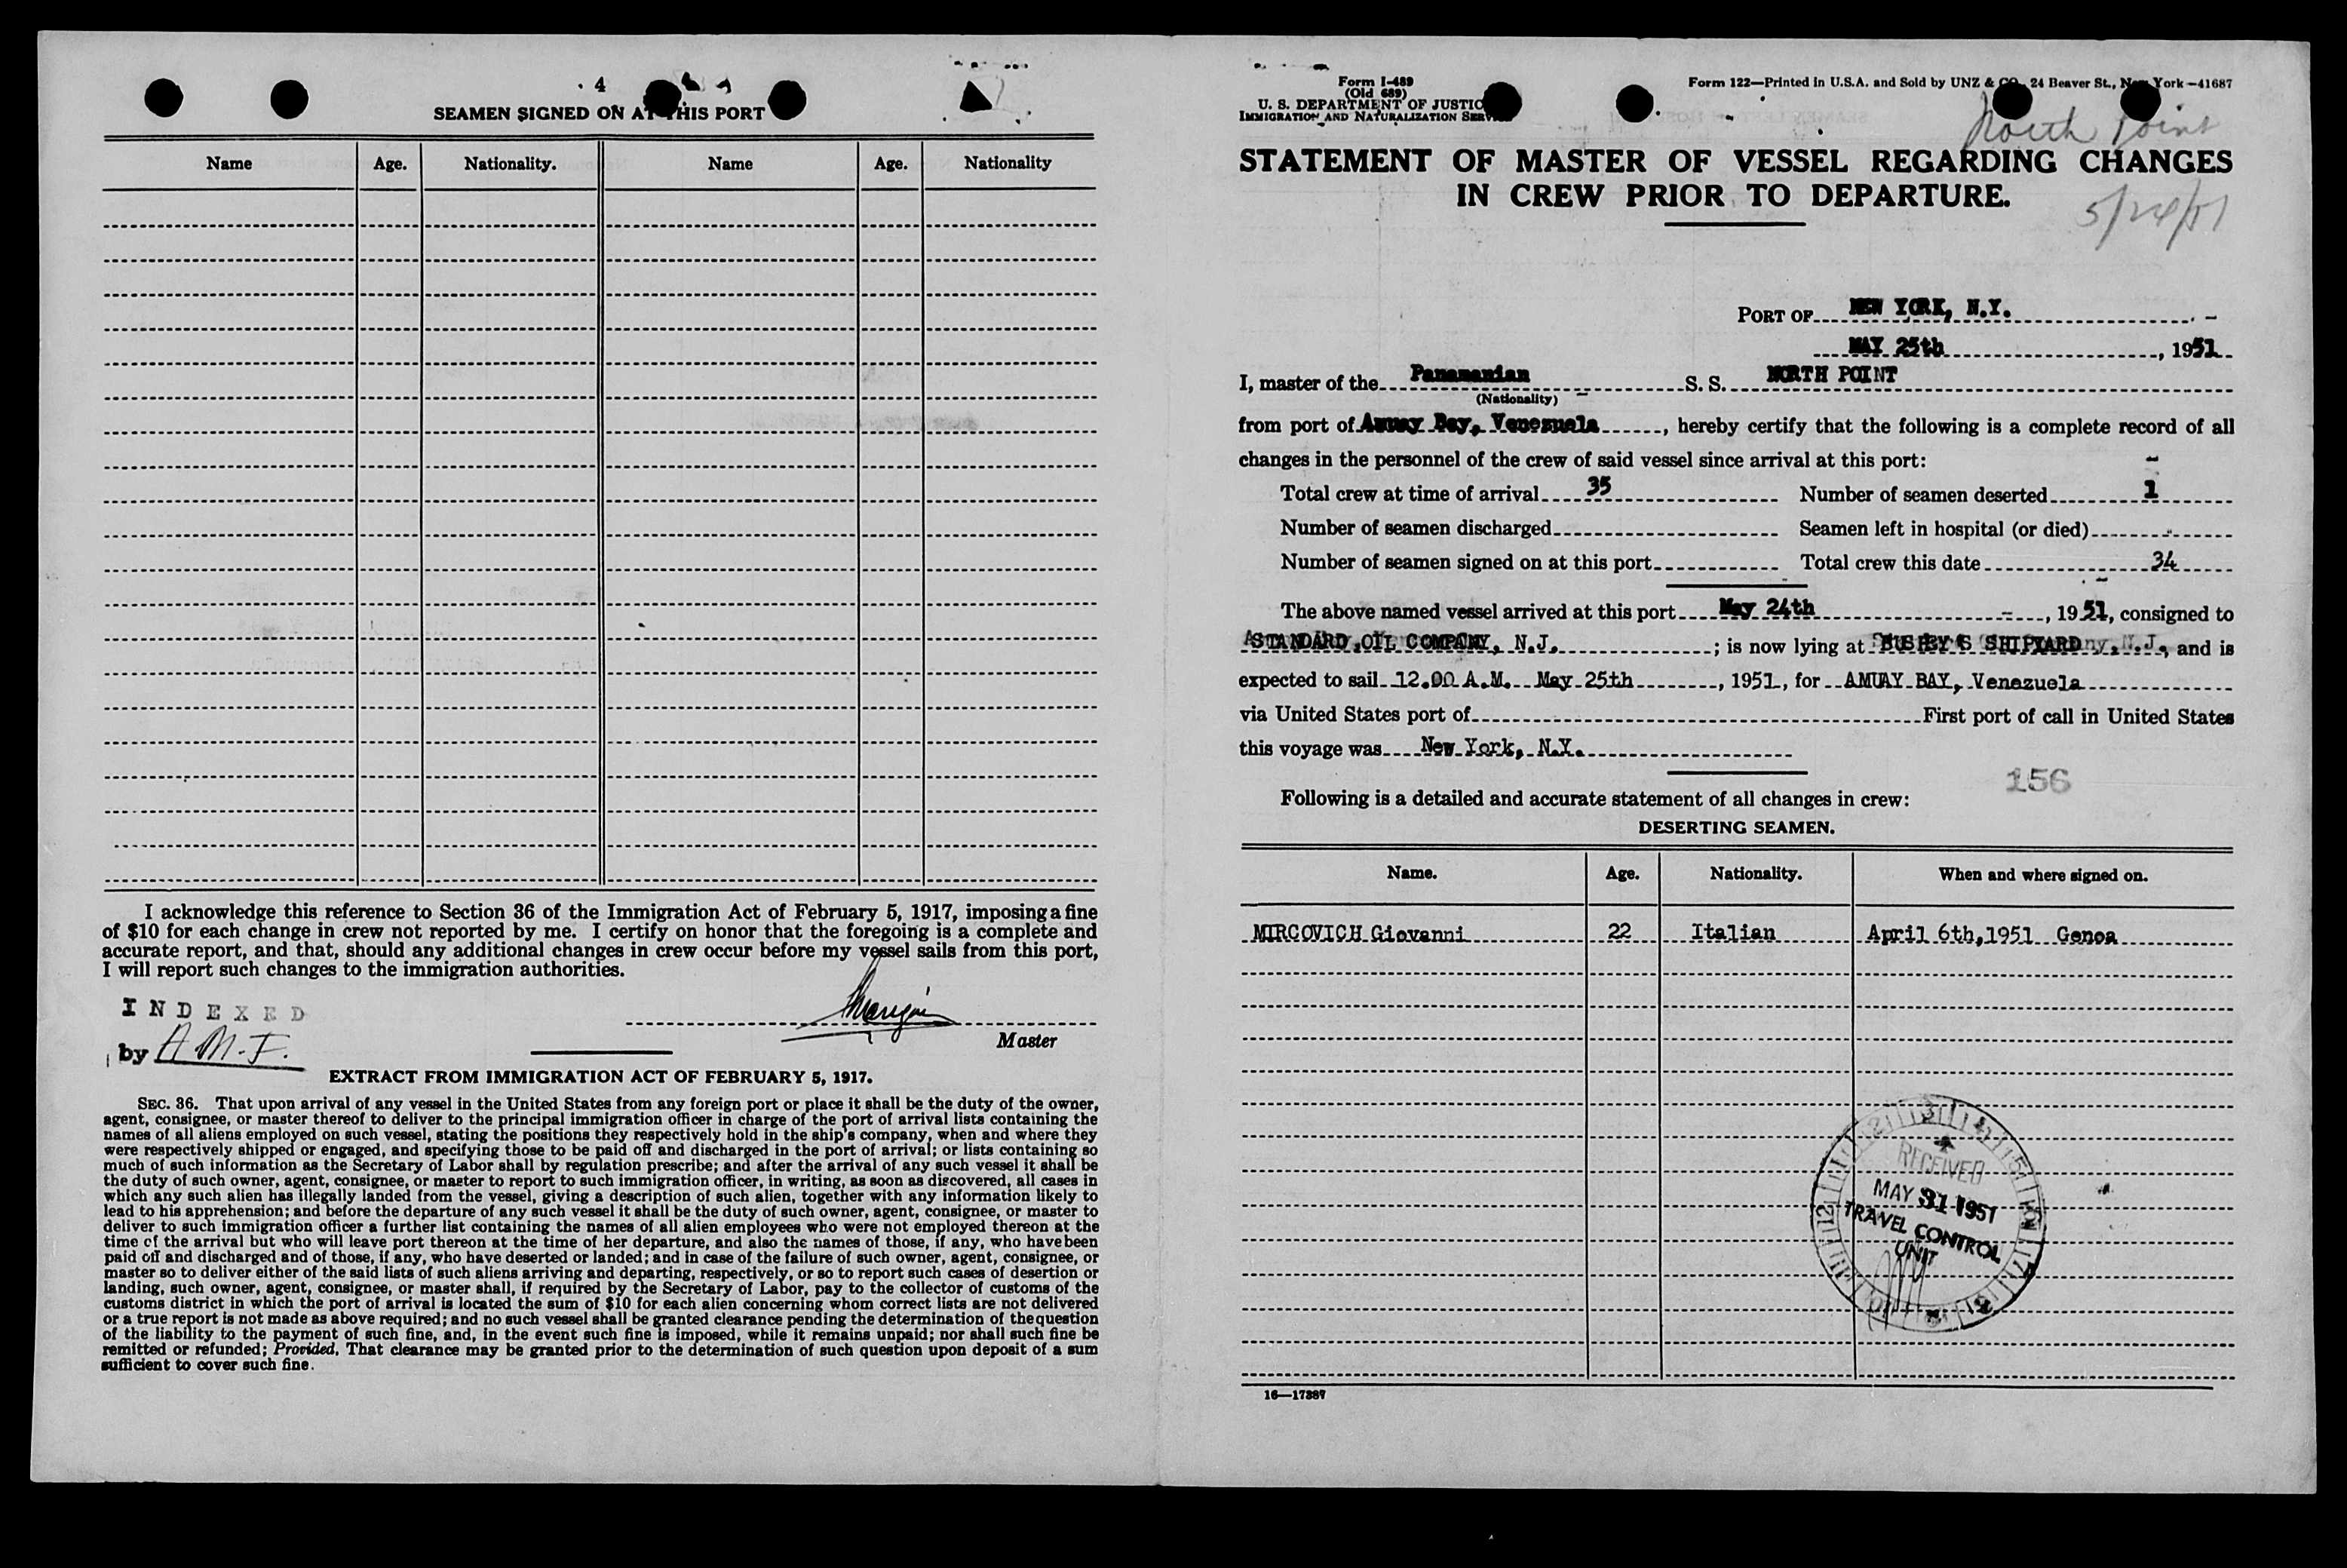 4
SEAMEN SIGNED ON AT THIS PORT
Name Age. Nationality. Name Age. Nationality
I acknowledge this reference to Section 36 of the Immigration Act of February 5, 1917, imposing a fine
of $10 for each change in crew not reported by me. I certify on honor that the foregoing is a complete and
accurate report, and that, should any additional changes in crew occur before my vessel sails from this port,
I will report such changes to the immigration authorities.
INDEXED
by A.M.F.
Master
EXTRACT FROM IMMIGRATION ACT OF FEBRUARY 5, 1917.
SEC. 36. That upon arrival of any vessel in the United States from any foreign port or place it shall be the duty of the owner,
agent, consignee, or master thereof to deliver to the principal immigration officer in charge of the port of arrival lists containing the
names of all aliens employed on such vessel, stating the positions they respectively hold in the ship's company, when and where they
were respectively shipped or engaged, and specifying those to be paid off and discharged in the port of arrival; or lists containing so
much of such information as the Secretary of Labor shall by regulation prescribe; and after the arrival of any such vessel it shall be
the duty of such owner, agent, consignee, or master to report to such immigration officer, in writing, as soon as discovered, all cases in
which any such alien has illegally landed from the vessel, giving a description of such alien, together with any information likely to
lead to his apprehension; and before the departure of any such vessel it shall be the duty of such owner, agent, consignee, or master to
deliver to such immigration officer a further list containing the names of all alien employees who were not employed thereon at the
time of the arrival but who will leave port thereon at the time of her departure, and also the names of those, if any, who have been
paid off and discharged and of those, if any, who have deserted or landed; and in case of the failure of such owner, agent, consignee, or
master so to deliver either of the said lists of such aliens arriving and departing, respectively, or so to report such cases of desertion or
landing, such owner, agent, consignee, or master shall, if required by the Secretary of Labor, pay to the collector of customs of the
customs district in which the port of arrival is located the sum of $10 for each alien concerning whom correct lists are not delivered
or a true report is not made as above required; and no such vessel shall be granted clearance pending the determination of the question
of the liability to the payment of such fine, and, in the event such fine is imposed, while it remains unpaid; nor shall such fine be
remitted or refunded; Provided, That clearance may be granted prior to the determination of such question upon deposit of a sum
sufficient to cover such fine.
Form I-489
(Old 689)
U. S. DEPARTMENT OF JUSTICE
IMMIGRATION AND NATURALIZATION SERVICE
Form 122—Printed in U.S.A. and Sold by UNZ & CO., 24 Beaver St., New York—41687
North Point
STATEMENT OF MASTER OF VESSEL REGARDING CHANGES
IN CREW PRIOR TO DEPARTURE.
5/24/51
PORT OF NEW YORK, N.Y.
MAY 25th, 1951
I, master of the Panamanian S. S. NORTH POINT
(Nationality)
from port of Amuay Bay, Venezuela, hereby certify that the following is a complete record of all
changes in the personnel of the crew of said vessel since arrival at this port:
Total crew at time of arrival 35 Number of seamen deserted 1
Number of seamen discharged Seamen left in hospital (or died)
Number of seamen signed on at this port Total crew this date 34
The above named vessel arrived at this port May 24th, 1951, consigned to
STANDARD OIL COMPANY, N.J. ; is now lying at BUSHEY'S SHIPYARD, and is
expected to sail 12.00 A.M. May 25th, 1951, for AMUAY BAY, Venezuela
via United States port of First port of call in United States
this voyage was New York, N.Y.
156
Following is a detailed and accurate statement of all changes in crew:
DESERTING SEAMEN.
Name. Age. Nationality. When and where signed on.
MIRCOVICH Giovanni 22 Italian April 6th,1951 Genoa
RECEIVED
MAY 31 1951
TRAVEL CONTROL
UNIT
16—17387